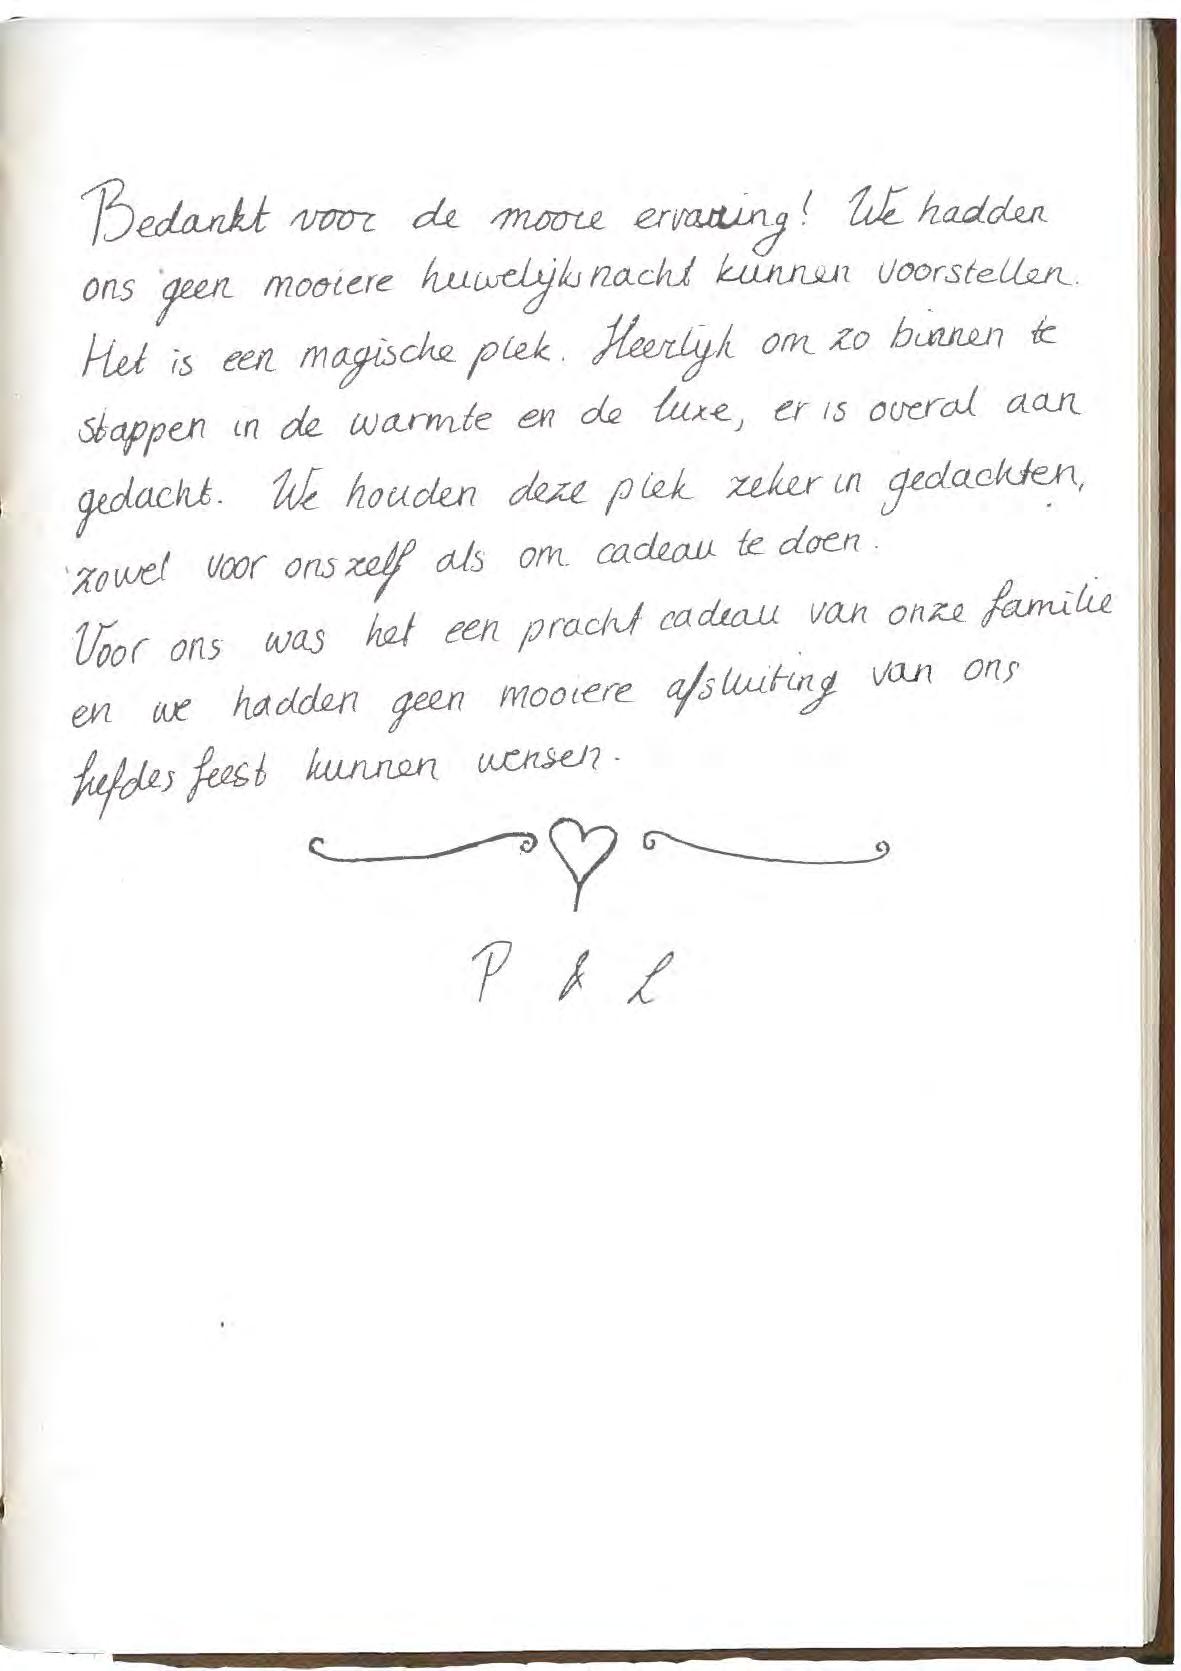 Bedankt voor de mooie ervaring! We hadden
ons geen mooiere huwelijksnacht kunnen voorstellen.
Het is een magische plek. Heerlijk om zo binnen te
stappen in de warmte en de luxe, er is overal aan
gedacht. We houden deze plek zeker in gedachten,
zowel voor onszelf als om cadeau te doen.
Voor ons was het een pracht cadeau van onze familie
en we hadden geen mooiere afsluiting van ons
liefdesfeest kunnen wensen.
P & L